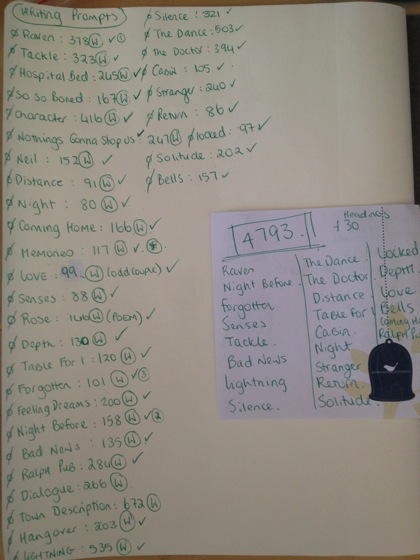 Writing Prompts
Raven : 378 W ✓ ①
Tackle : 323 W ✓
Hospital Bed : 245 W ✓
So So Bored : 167 W ✓
Character : 416 W ✓
Nothings Gonna Stop us ✓ : 247 W
Neil : 152 W ✓
Distance : 91 W ✓
Night : 80 W ✓
Coming Home : 166 W ✓
Memories : 117 W ✓
LOVE : 99 W (odd couple) ✓
Senses : 88 W ✓
Rose : 146 W (POEM) ✓
Depth : 130 W ✓
Table For 1 : 120 W ✓
Forgotten : 101 W ✓ ③
Feeling Dreams : 200 W ✓
Night Before : 158 W ✓ ②
Bad News : 135 W ✓
Ralph Pub : 284 W
Dialogue : 266 W
Town Description : 672 W
Hangover : 203 W ✓
LIGHTNING : 535 W ✓
Silence : 321 ✓
The Dance : 503 ✓
The Doctor : 394 ✓
Cabin : 105 ✓
Stranger : 240 ✓
Return : 86 ✓
locked : 97 ✓
Solitude : 202 ✓
Bells : 157 ✓
4793.
Headings
+ 30
Raven
Night Before
Forgotten
Senses
Tackle
Bad News
Lightning
Silence.
The Dance
The Doctor
Distance
Table For 1
Cabin
Night
Stranger
Return
Solitude
Locked
Depth
Love
Bells
Coming
Ralph Pub